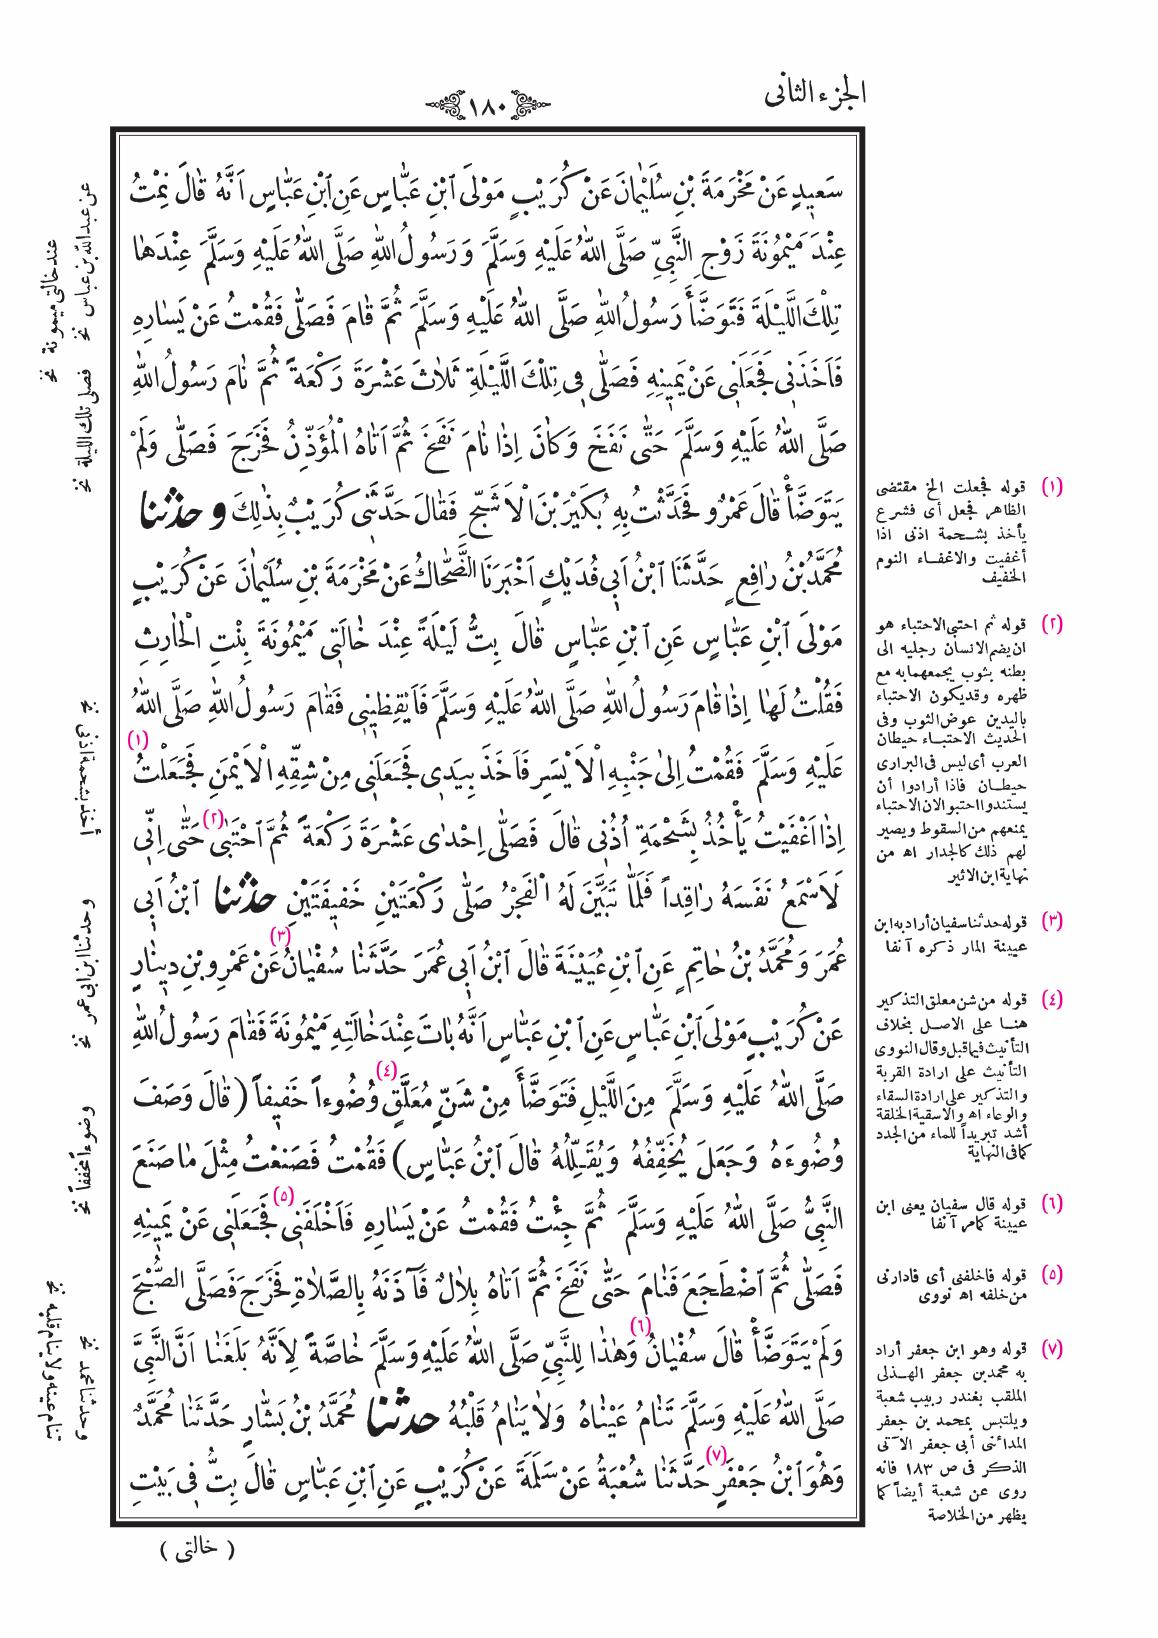 الجزء الثانى
١٨٠
سَعِيدٍ عَنْ مَخْرَمَةَ بْنِ سُلَيْمَانَ عَنْ كُرَيْبٍ مَوْلَى ابْنِ عَبَّاسٍ عَنِ ابْنِ عَبَّاسٍ اَنَّهُ قَالَ نِمْتُ
عِنْدَ مَيْمُونَةَ زَوْجِ النَّبِيِّ صَلَّى اللهُ عَلَيْهِ وَسَلَّمَ وَرَسُولُ اللهِ صَلَّى اللهُ عَلَيْهِ وَسَلَّمَ عِنْدَهَا
تِلْكَ اللَّيْلَةَ فَتَوَضَّأَ رَسُولُ اللهِ صَلَّى اللهُ عَلَيْهِ وَسَلَّمَ ثُمَّ قَامَ فَصَلَّى فَقُمْتُ عَنْ يَسَارِهِ
فَاَخَذَنِى فَجَعَلَنِى عَنْ يَمِينِهِ فَصَلَّى فِى تِلْكَ اللَّيْلَةِ ثَلَاثَ عَشْرَةَ رَكْعَةً ثُمَّ نَامَ رَسُولُ اللهِ
صَلَّى اللهُ عَلَيْهِ وَسَلَّمَ حَتَّى نَفَخَ وَكَانَ اِذَا نَامَ نَفَخَ ثُمَّ اَتَاهُ الْمُؤَذِّنُ فَخَرَجَ فَصَلَّى وَلَمْ
يَتَوَضَّأْ قَالَ عَمْرٌو فَحَدَّثْتُ بِهِ بُكَيْرَ بْنَ الْاَشَجِّ فَقَالَ حَدَّثَنِى كُرَيْبٌ بِذٰلِكَ و حدثنا
مُحَمَّدُ بْنُ رَافِعٍ حَدَّثَنَا ابْنُ اَبِى فُدَيْكٍ اَخْبَرَنَا الضَّحَّاكُ عَنْ مَخْرَمَةَ بْنِ سُلَيْمَانَ عَنْ كُرَيْبٍ
مَوْلَى ابْنِ عَبَّاسٍ عَنِ ابْنِ عَبَّاسٍ قَالَ بِتُّ لَيْلَةً عِنْدَ خَالَتِى مَيْمُونَةَ بِنْتِ الْحَارِثِ
فَقُلْتُ لَهَا اِذَا قَامَ رَسُولُ اللهِ صَلَّى اللهُ عَلَيْهِ وَسَلَّمَ فَاَيْقِظِينِى فَقَامَ رَسُولُ اللهِ صَلَّى اللهُ
عَلَيْهِ وَسَلَّمَ فَقُمْتُ اِلَى جَنْبِهِ الْاَيْسَرِ فَاَخَذَ بِيَدِى فَجَعَلَنِى مِنْ شِقِّهِ الْاَيْمَنِ فَجَعَلْتُ (١)
اِذَا اَغْفَيْتُ يَأْخُذُ بِشَحْمَةِ اُذُنِى قَالَ فَصَلَّى اِحْدَى عَشْرَةَ رَكْعَةً ثُمَّ احْتَبَى (٢) حَتَّى اِنِّى
لَاَسْمَعُ نَفَسَهُ رَاقِداً فَلَمَّا تَبَيَّنَ لَهُ الْفَجْرُ صَلَّى رَكْعَتَيْنِ خَفِيفَتَيْنِ حدثنا ابْنُ اَبِى
عُمَرَ وَمُحَمَّدُ بْنُ حَاتِمٍ عَنِ ابْنِ عُيَيْنَةَ قَالَ ابْنُ اَبِى عُمَرَ حَدَّثَنَا سُفْيَانُ (٣) عَنْ عَمْرِو بْنِ دِينَارٍ
عَنْ كُرَيْبٍ مَوْلَى ابْنِ عَبَّاسٍ عَنِ ابْنِ عَبَّاسٍ اَنَّهُ بَاتَ عِنْدَ خَالَتِهِ مَيْمُونَةَ فَقَامَ رَسُولُ اللهِ
صَلَّى اللهُ عَلَيْهِ وَسَلَّمَ مِنَ اللَّيْلِ فَتَوَضَّأَ مِنْ شَنٍّ مُعَلَّقٍ (٤) وُضُوءاً خَفِيفاً ( قَالَ وَصَفَ
وُضُوءَهُ وَجَعَلَ يُخَفِّفُهُ وَيُقَلِّلُهُ قَالَ ابْنُ عَبَّاسٍ ) فَقُمْتُ فَصَنَعْتُ مِثْلَ مَا صَنَعَ
النَّبِيُّ صَلَّى اللهُ عَلَيْهِ وَسَلَّمَ ثُمَّ جِئْتُ فَقُمْتُ عَنْ يَسَارِهِ فَاَخْلَفَنِى (٥) فَجَعَلَنِى عَنْ يَمِينِهِ
فَصَلَّى ثُمَّ اضْطَجَعَ فَنَامَ حَتَّى نَفَخَ ثُمَّ اَتَاهُ بِلَالٌ فَآذَنَهُ بِالصَّلَاةِ فَخَرَجَ فَصَلَّى الصُّبْحَ
وَلَمْ يَتَوَضَّأْ قَالَ سُفْيَانُ (٦) وَهٰذَا لِلنَّبِيِّ صَلَّى اللهُ عَلَيْهِ وَسَلَّمَ خَاصَّةً لِاَنَّهُ بَلَغَنَا اَنَّ النَّبِيَّ
صَلَّى اللهُ عَلَيْهِ وَسَلَّمَ تَنَامُ عَيْنَاهُ وَلَا يَنَامُ قَلْبُهُ حدثنا مُحَمَّدُ بْنُ بَشَّارٍ حَدَّثَنَا مُحَمَّدٌ
وَهُوَ ابْنُ جَعْفَرٍ (٧) حَدَّثَنَا شُعْبَةُ عَنْ سَلَمَةَ عَنْ كُرَيْبٍ عَنِ ابْنِ عَبَّاسٍ قَالَ بِتُّ فِى بَيْتِ
( خالتى )
(١) قوله فجعلت الخ مقتضى
الظاهر فجعل أى فشرع
يأخذ بشحمة اذنى اذا
أغفيت والاغفاء النوم
الخفيف
(٢) قوله ثم احتبى الاحتباء هو
ان يضم الانسان رجليه الى
بطنه بثوب يجمعهما به مع
ظهره وقد يكون الاحتباء
باليدين عوض الثوب وفى
الحديث الاحتباء حيطان
العرب أى ليس فى البرارى
حيطان فاذا أرادوا أن
يستندوا احتبوا لان الاحتباء
يمنعهم من السقوط ويصير
لهم ذلك كالجدار اه من
نهاية ابن الاثير
(٣) قوله حدثنا سفيان أراد به ابن
عيينة المار ذكره آنفا
(٤) قوله من شن معلق التذكير
هنا على الاصل بخلاف
التأنيث فيما قبل وقال النووى
التأنيث على ارادة القربة
والتذكير على ارادة السقاء
والوعاء اه والاسقية الخلقة
أشد تبريداً للماء من الجدد
كما فى النهاية
(٦) قوله قال سفيان يعنى ابن
عيينة كما مر آنفا
(٥) قوله فاخلفنى أى فادارنى
من خلفه اه نووى
(٧) قوله وهو ابن جعفر أراد
به محمد بن جعفر الهذلى
الملقب بغندر ربيب شعبة
ويلتبس بمحمد بن جعفر
المدائنى أبى جعفر الآتى
الذكر فى ص ١٨٣ فانه
روى عن شعبة أيضاً كما
يظهر من الخلاصة
عن عبدالله بن عباس نخ
عند خالتى ميمونة نخ
فصلى تلك الليلة نخ
أخذ بشحمة اذنى نخ
وحدثنا ابن ابى عمر نخ
وضوءاً مخففاً نخ
وحدثنا محمد نخ
تنام عينه ولا ينام قلبه نخ